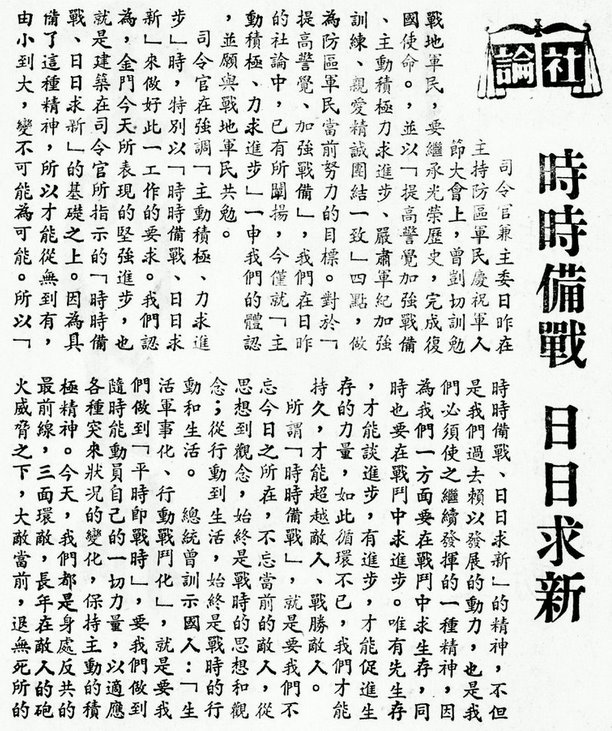 社論
時時備戰 日日求新
司令官兼主委日昨在
主持防區軍民慶祝軍人
節大會上，曾剴切訓勉
戰地軍民，要繼承光榮歷史，完成復
國使命。並以「提高警覺加強戰備
、主動積極力求進步、嚴肅軍紀加強
訓練、親愛精誠團結一致」四點，做
為防區軍民當前努力的目標。對於「
提高警覺、加強戰備」，我們在日昨
的社論中，已有所闡揚，今僅就「主
動積極、力求進步」一申我們的體認
，並願與戰地軍民共勉。
司令官在強調「主動積極、力求進
步」時，特別以「時時備戰、日日求
新」來做好此一工作的要求。我們認
為，金門今天所表現的堅強進步，也
就是建築在司令官所指示的「時時備
戰、日日求新」的基礎之上。因為具
備了這種精神，所以才能從無到有，
由小到大，變不可能為可能。所以「
時時備戰、日日求新」的精神，不但
是我們過去賴以發展的動力，也是我
們必須使之繼續發揮的一種精神，因
為我們一方面要在戰鬥中求生存，同
時也要在戰鬥中求進步。唯有先生存
，才能談進步，有進步，才能促進生
存的力量，如此循環不已，我們才能
持久，才能超越敵人、戰勝敵人。
所謂「時時備戰」，就是要我們不
忘今日之所在，不忘當前的敵人，從
思想到觀念，始終是戰時的思想和觀
念；從行動到生活，始終是戰時的行
動和生活。　總統曾訓示國人：「生
活軍事化、行動戰鬥化」，就是要我
們做到「平時即戰時」，要我們做到
隨時能動員自己的一切力量，以適應
各種突來狀況的變化，保持主動的積
極精神。今天，我們都是身處反共的
最前線，三面環敵，長年在敵人的砲
火威脅之下，大敵當前，退無死所的